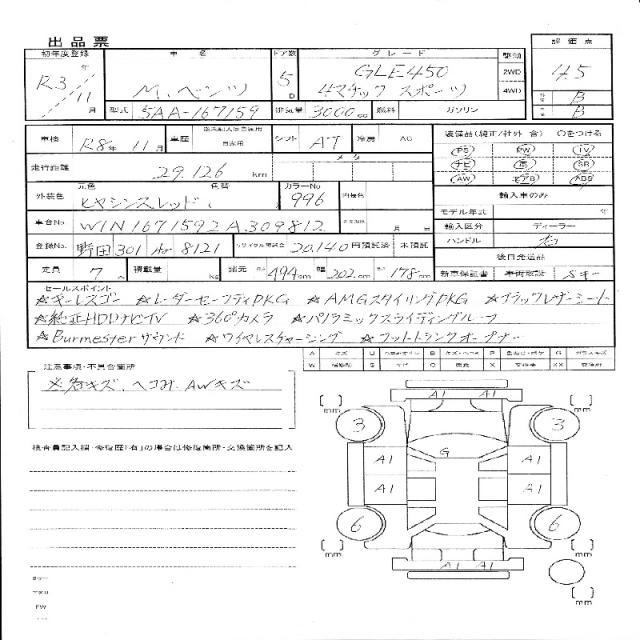 出品票
初年度登録 車名 ドア数 グレード 駆動 評価点
R3年 11月 M、ベンツ 5D GLE450 4マチック スポーツ 2WD 4WD 4.5
B
B
型式 5AA-167159 排気量 3000cc 燃料 ガソリン
車検 R8年 11月 車歴 自家用 シフト AT 冷房 AC
装備品(純正/社外 含) ○をつける
PS PW TV
ナビ 革 SR
AW エアB ABS
走行距離 29,126 km メータ
外装色 元色 色替 カラーNo
ヒヤシンスレッド 996 内装色
輸入車のみ
モデル年式 年
車台No WIN1671592A309812 月 日
輸入区分 ディーラー
ハンドル 右
登録No. 野田301 8121 リサイクル預託金 20,140円預託済 未預託
後日発送品
定員 7人 積載量 Kg 諸元 長さ 494cm 幅 202cm 高さ 178cm
新車保証書 車両取説 Sキー
セールスポイント
☆キーレスゴー ☆レーダーセーフティPKG ☆AMGスタイリングPKG ☆ブラックレザーシート
☆純正HDDナビTV ☆360°カメラ ☆パノラミックスライディングルーフ
☆Burmesterサウンド ☆ワイヤレスチャージング ☆フットトランクオープナー
注意事項・不具合箇所
※各キズ、ヘコみ、AWキズ
検査員記入欄・修復歴「有」の場合は修復箇所・交換箇所を記入
A1 A1
3 3
mm mm
G
A1 A1
A1 A1
6 6
mm mm
A1 A1
mm